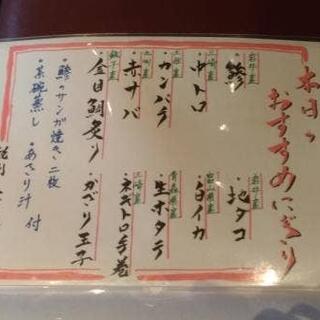 本日の
おすすめにぎり
岩井産
・鯵
岩井産
地タコ
三崎産
・中トロ
富山県産
・白イカ
・カンパチ
青森県産
・生ホタテ
・赤サバ
三崎産
・ネギトロ手巻
銚子産
・金目鯛炙り
・かざり玉子
・鯵のサンガ焼き二枚
・あさり汁 付
・茶碗蒸し